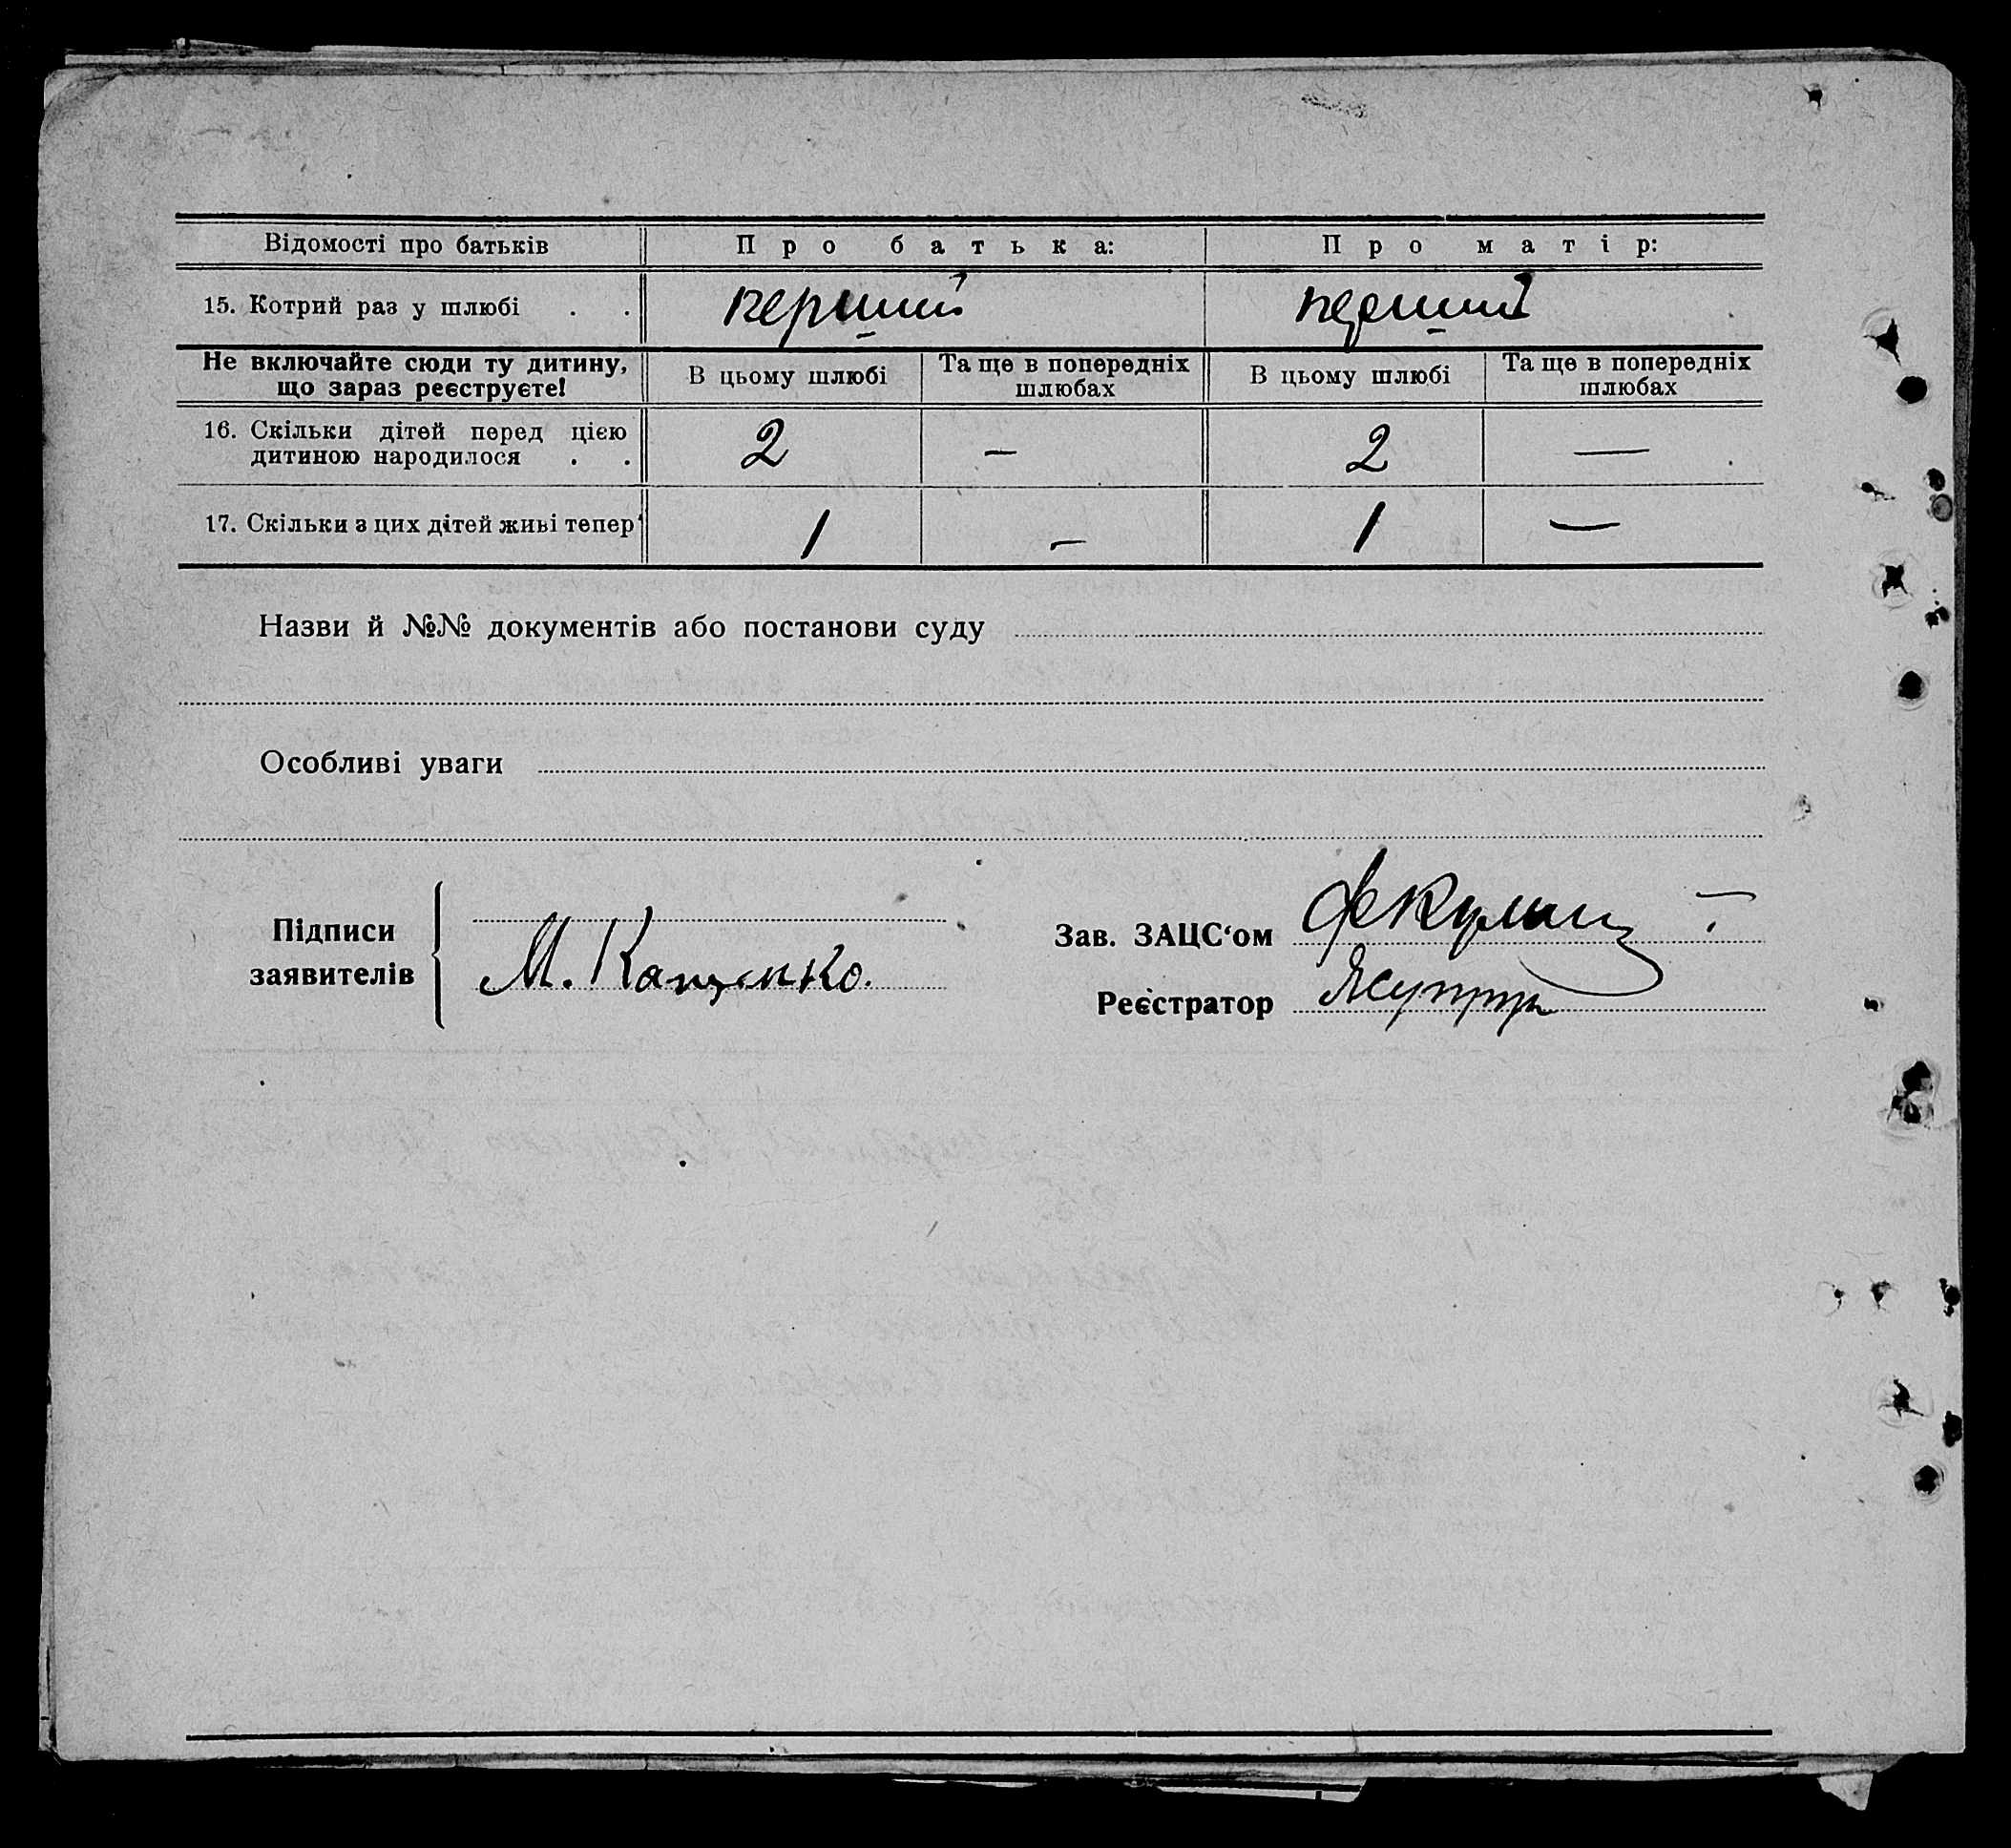 Відомості про батьків Про батька: Про матір:
15. Котрий раз у шлюбі . . перший перший
Не включайте сюди ту дитину, що зараз реєструєте! В цьому шлюбі Та ще в попередніх шлюбах В цьому шлюбі Та ще в попередніх шлюбах
16. Скільки дітей перед цією
дитиною народилося . . 2 — 2 —
17. Скільки з цих дітей живі тепер 1 — 1 —
Назви й №№ документів або постанови суду
Особливі уваги
Підписи
заявителів
М. Кащенко.
Зав. ЗАЦС‘ом
Реєстратор